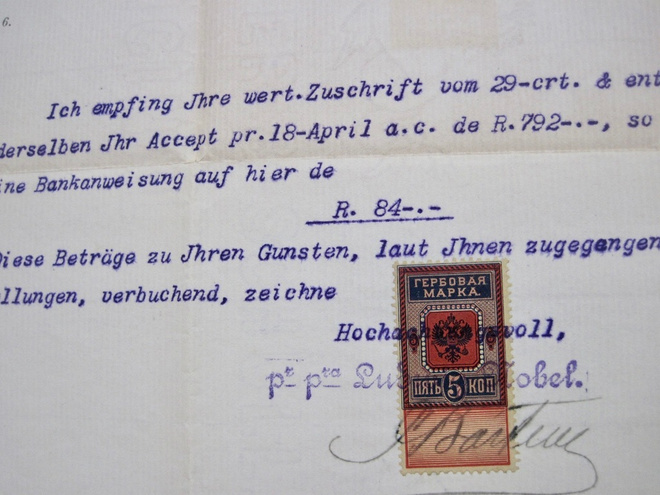 6.
Ich empfing Jhre wert.Zuschrift vom 29-crt. & ent
derselben Jhr Accept pr.18-April a.c. de R.792-.-, so
ine Bankanweisung auf hier de
R. 84-.-
Diese Beträge zu Jhren Gunsten, laut Jhnen zugegangen
llungen, verbuchend, zeichne
ГЕРБОВАЯ
МАРКА.
Hochachtungsvoll,
pr pra Ludwig Nobel.
ПЯТЬ 5 КОП